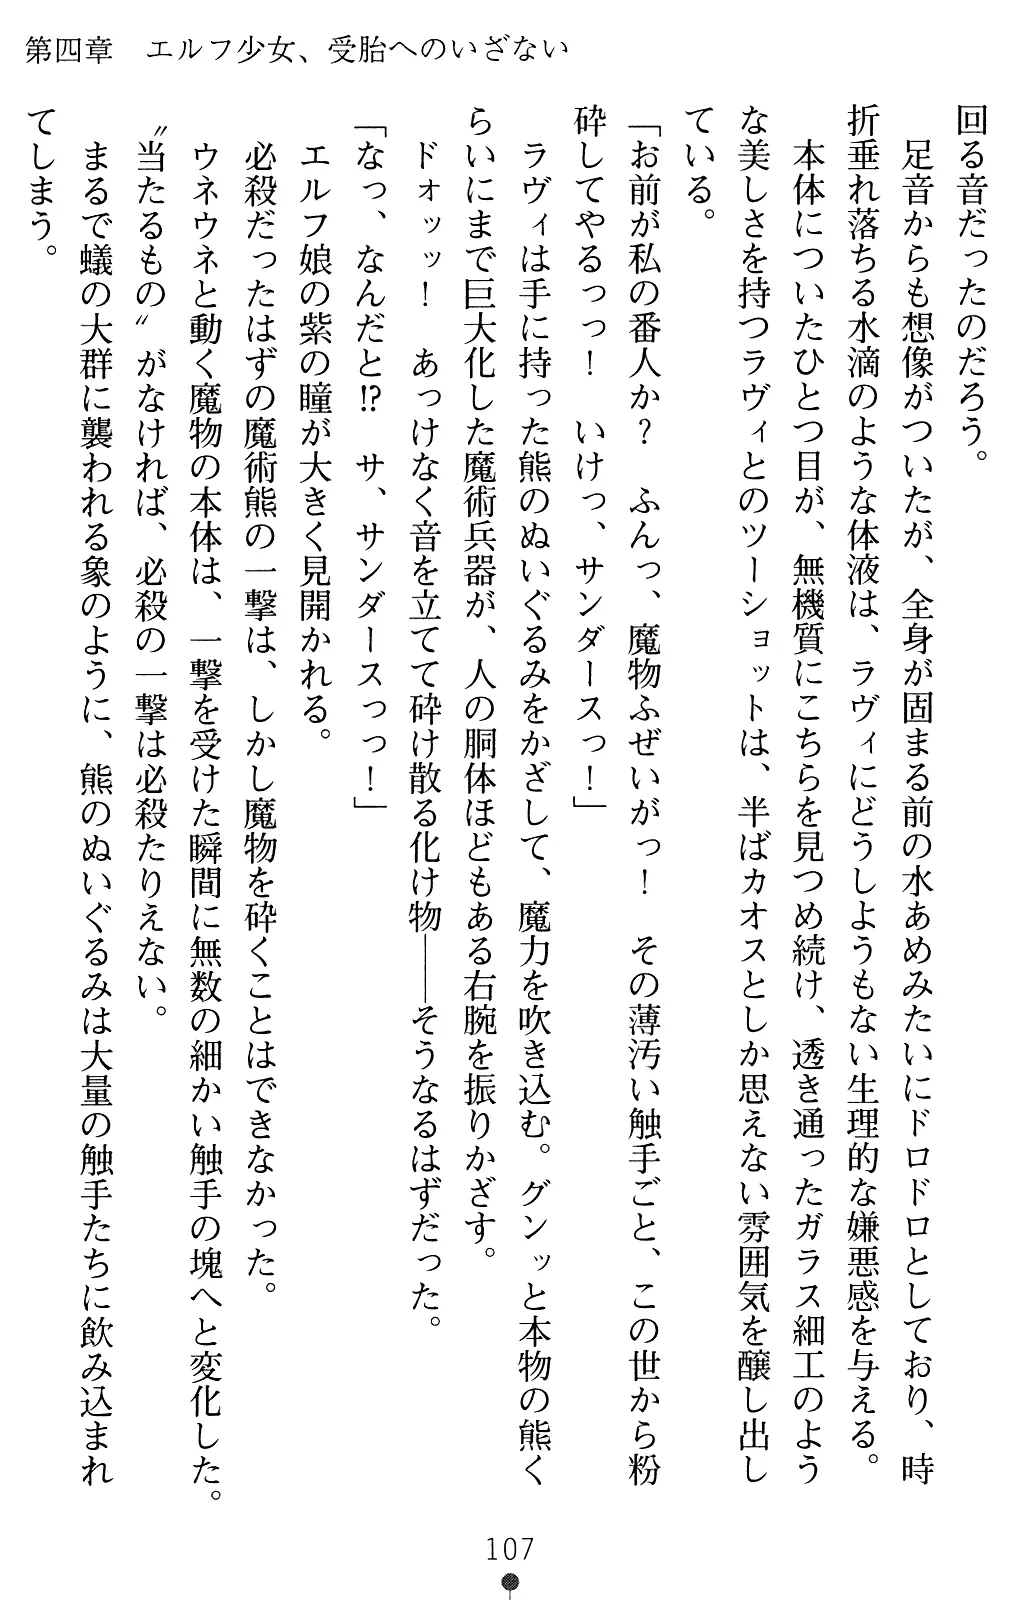 第四章　エルフ少女、受胎へのいざない
回る音だったのだろう。
　足音からも想像がついたが、全身が固まる前の水あめみたいにドロドロとしており、時
折垂れ落ちる水滴のような体液は、ラヴィにどうしようもない生理的な嫌悪感を与える。
　本体についたひとつ目が、無機質にこちらを見つめ続け、透き通ったガラス細工のよう
な美しさを持つラヴィとのツーショットは、半ばカオスとしか思えない雰囲気を醸し出し
ている。
「お前が私の番人か？　ふんっ、魔物ふぜいがっ！　その薄汚い触手ごと、この世から粉
砕してやるっっ！　いけっ、サンダースっ！」
　ラヴィは手に持った熊のぬいぐるみをかざして、魔力を吹き込む。グンッと本物の熊く
らいにまで巨大化した魔術兵器が、人の胴体ほどもある右腕を振りかざす。
　ドォッッ！　あっけなく音を立てて砕け散る化け物――そうなるはずだった。
「なっ、なんだと⁉　サ、サンダースっっ！」
　エルフ娘の紫の瞳が大きく見開かれる。
　必殺だったはずの魔術熊の一撃は、しかし魔物を砕くことはできなかった。
　ウネウネと動く魔物の本体は、一撃を受けた瞬間に無数の細かい触手の塊へと変化した。
〝当たるもの〟がなければ、必殺の一撃は必殺たりえない。
　まるで蟻の大群に襲われる象のように、熊のぬいぐるみは大量の触手たちに飲み込まれ
てしまう。
107